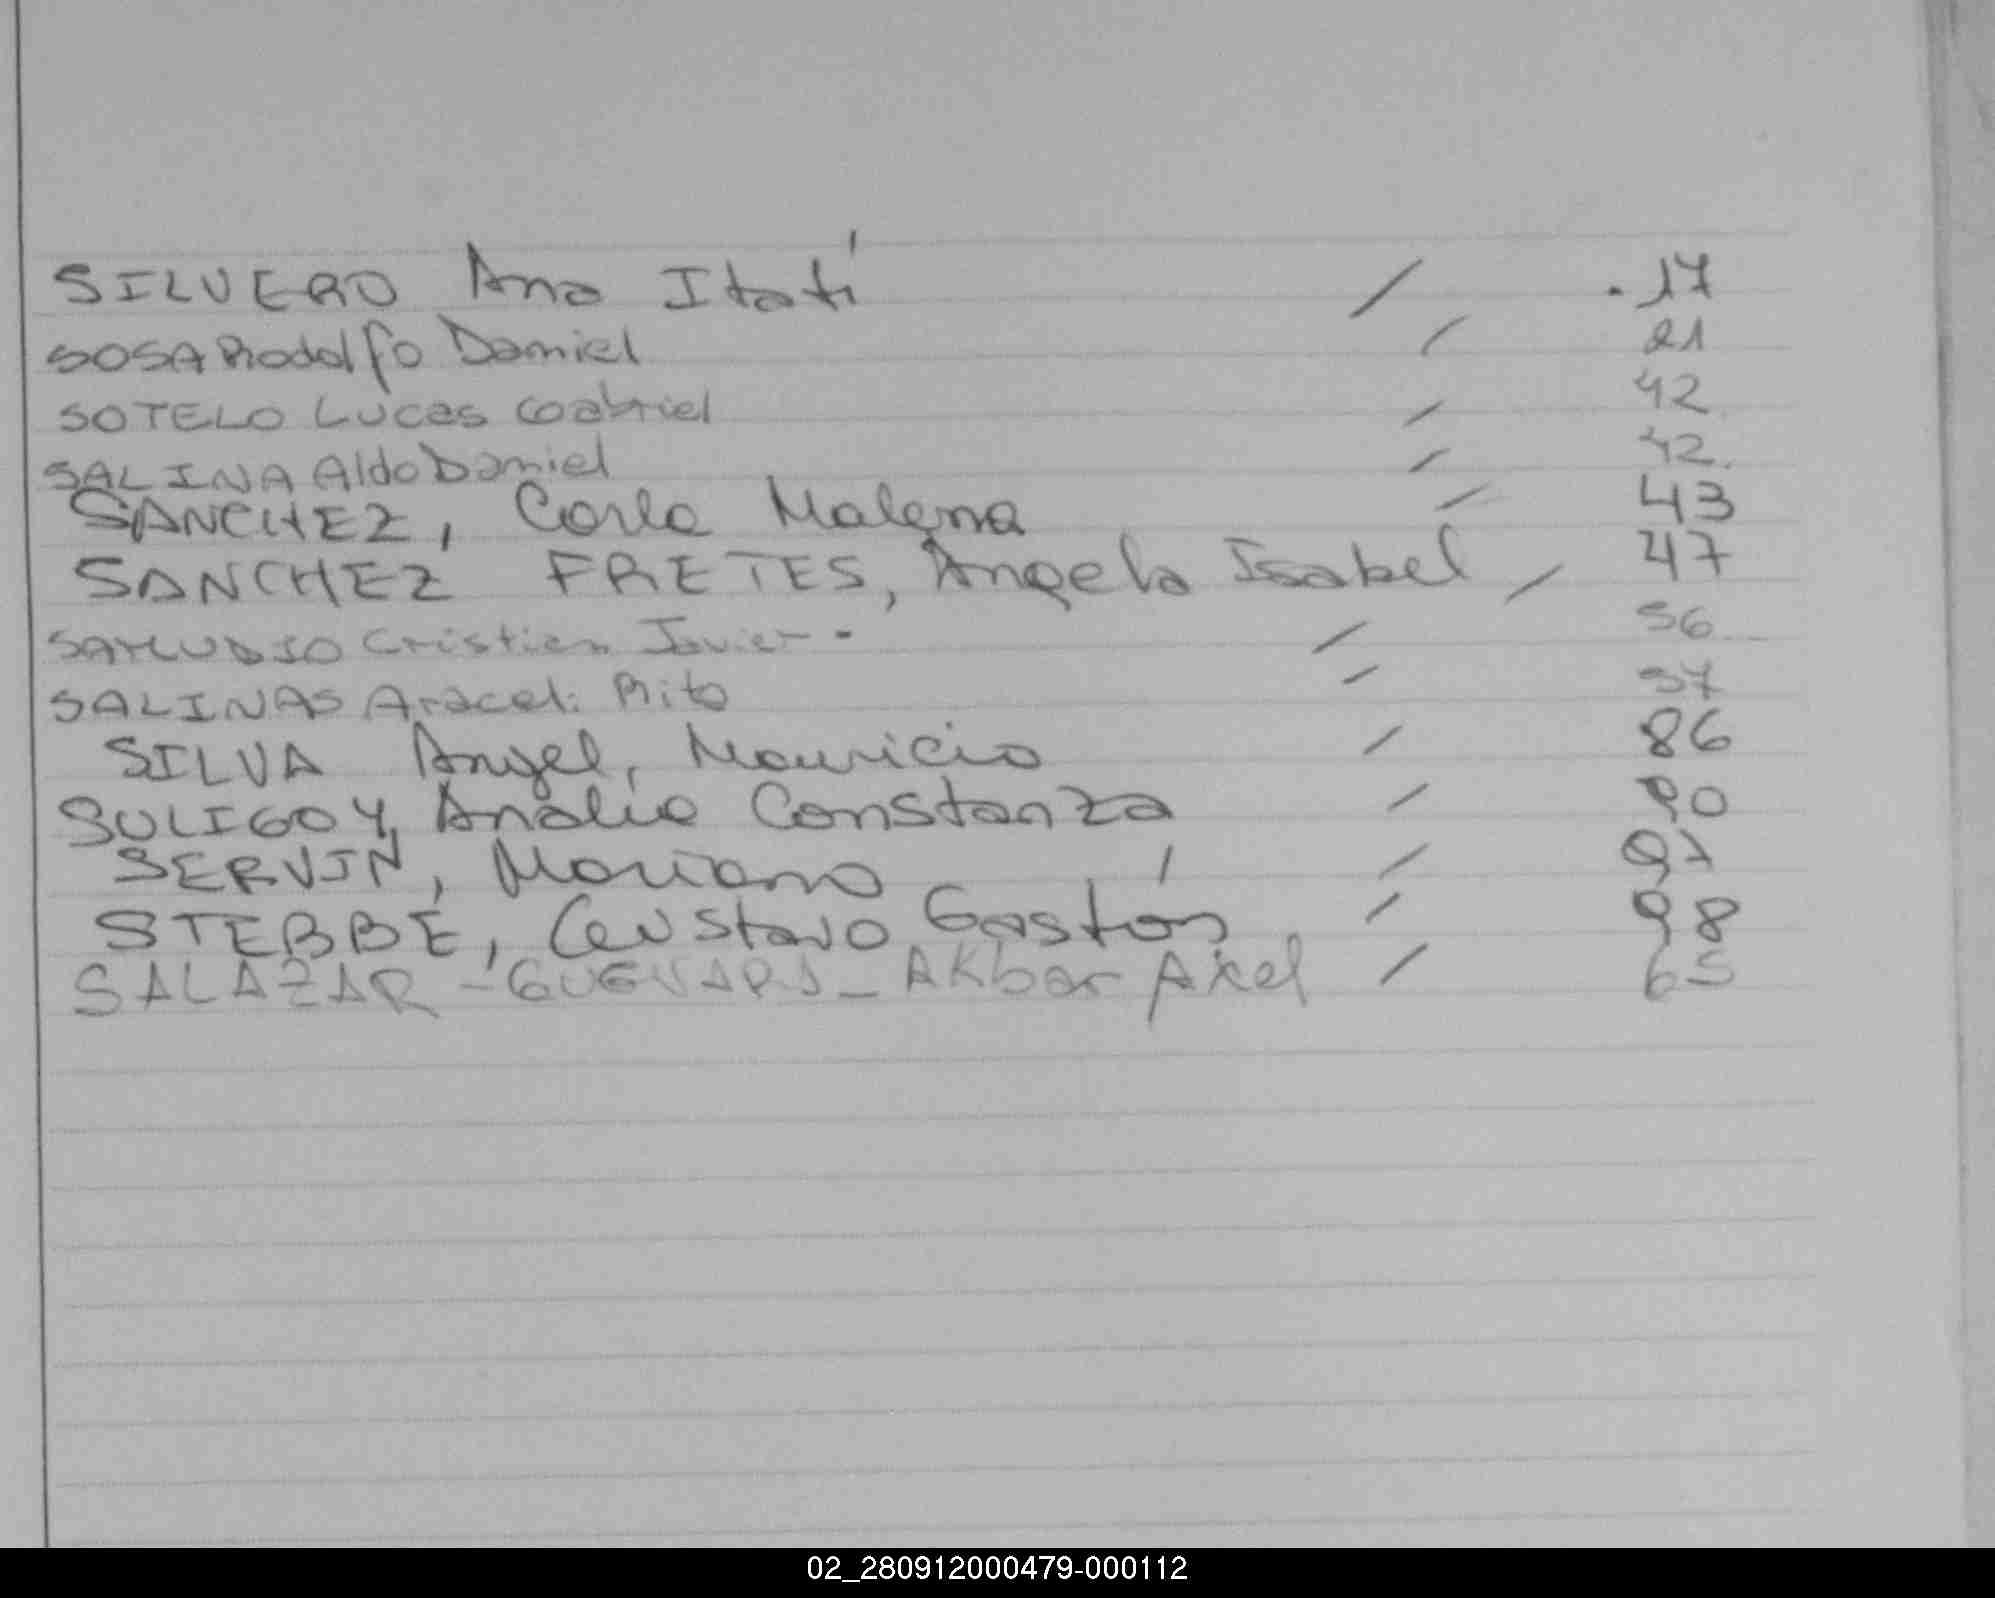 SILVERO Ana Itatí / . 17
SOSA Rodolfo Daniel / 21
SOTELO Lucas Gabriel / 42
SALINA Aldo Daniel / 42.
SANCHEZ, Carla Malena / 43
SANCHEZ FRETES, Angela Isabel / 47
SAMUDIO Cristian Javier - / 56
SALINAS Araceli Rita / 57
SILVA Angel, Mauricio / 86
SULIGOY, Analia Constanza / 90
SERVIN, Mariano / 97
STEBBE, Gustavo Gastón / 98
SALAZAR - GUEVARA - Akbar Axel / 65
02_280912000479-000112